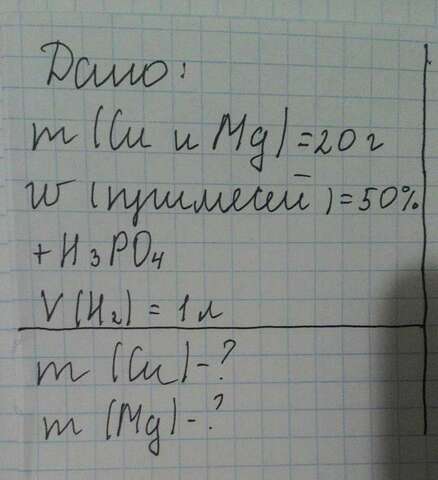 Дано:
m (Cu и Mg) = 20 г
W (примесей) = 50%
+ H3PO4
V (H2) = 1 л
m (Cu) - ?
m (Mg) - ?